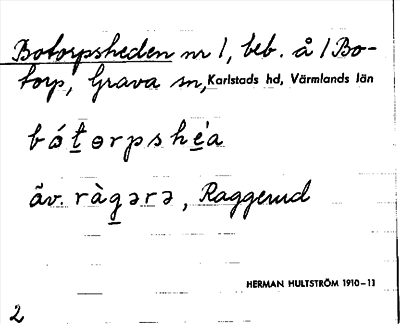 Botorpsheden nr 1, beb. å 1 Bo-
torp, Grava sn, Karlstads hd, Värmlands län
bótɵrpshé̱a
äv. ràg̱ərə, Raggerud
HERMAN HULTSTRÖM 1910–11
2